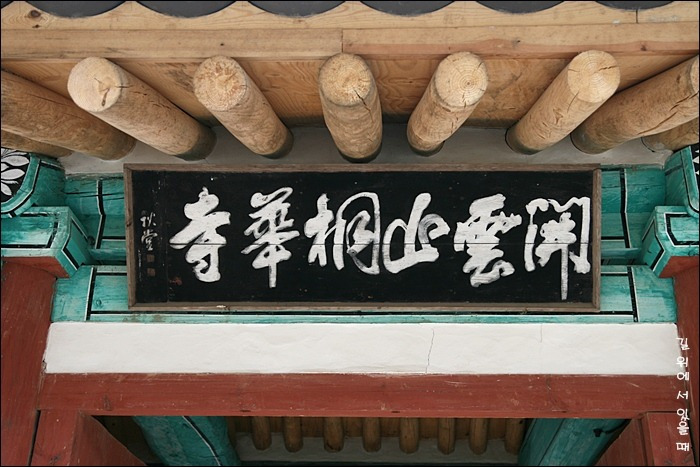 開雲山桐華寺
秋堂
길위에서있을때